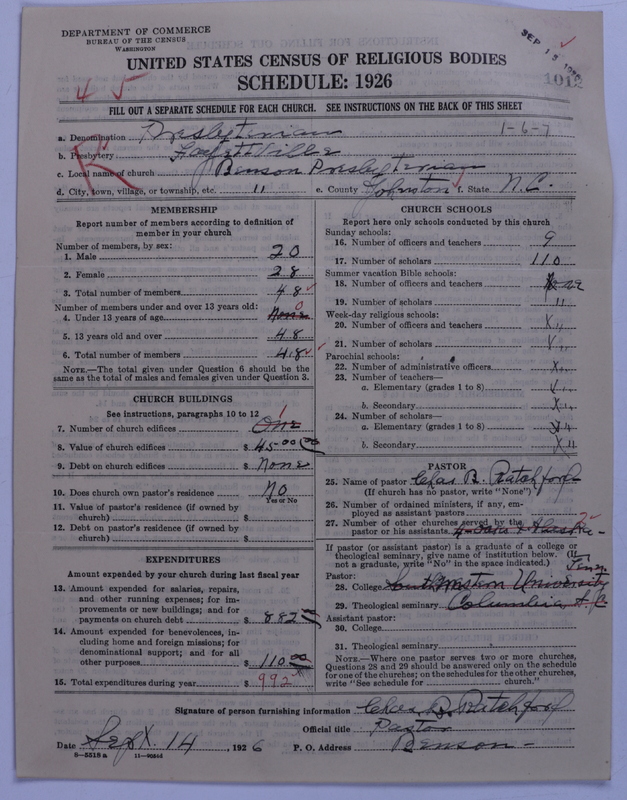 DEPARTMENT OF COMMERCE
BUREAU OF THE CENSUS
WASHINGTON
SEP 15 1926
1012
UNITED STATES CENSUS OF RELIGIOUS BODIES
SCHEDULE: 1926
4 5
FILL OUT A SEPARATE SCHEDULE FOR EACH CHURCH. SEE INSTRUCTIONS ON THE BACK OF THIS SHEET
a. Denomination Presbyterian 1-6-7
b. Presbytery
c. Local name of church Benson Presbyterian
d. City, town, village, or township, etc. 11 e. County Johnston f. State N.C.
MEMBERSHIP
Report number of members according to definition of member in your church
Number of members, by sex:
1. Male 20
2. Female 28
3. Total number of members 48
Number of members under and over 13 years old:
4. Under 13 years of age None 0
5. 13 years old and over 48
6. Total number of members 48
NOTE.—The total given under Question 6 should be the same as the total of males and females given under Question 3.
CHURCH BUILDINGS
See instructions, paragraphs 10 to 12
7. Number of church edifices One 1
8. Value of church edifices $ 4500 00
9. Debt on church edifices $ None
10. Does church own pastor's residence No
Yes or No
11. Value of pastor's residence (if owned by church) $
12. Debt on pastor's residence (if owned by church) $
EXPENDITURES
Amount expended by your church during last fiscal year
13. Amount expended for salaries, repairs, and other running expenses; for improvements or new buildings; and for payments on church debt $ 882
14. Amount expended for benevolences, including home and foreign missions; for denominational support; and for all other purposes $ 110.00
15. Total expenditures during year $ 992
CHURCH SCHOOLS
Report here only schools conducted by this church
Sunday schools:
16. Number of officers and teachers 9
17. Number of scholars 110
Summer vacation Bible schools:
18. Number of officers and teachers
19. Number of scholars 11
Week-day religious schools:
20. Number of officers and teachers X 11
21. Number of scholars
Parochial schools:
22. Number of administrative officers X 11
23. Number of teachers—
a. Elementary (grades 1 to 8)
b. Secondary X 11
24. Number of scholars—
a. Elementary (grades 1 to 8)
b. Secondary X 11
PASTOR
25. Name of pastor Chas B. Ratchford
(If church has no pastor, write "None")
26. Number of ordained ministers, if any, employed as assistant pastors
27. Number of other churches served by the pastor or his assistants 2
If pastor (or assistant pastor) is a graduate of a college or theological seminary, give name of institution below. (If not a graduate, write "No" in the space indicated.)
Pastor:
28. College Southwestern University Tenn.
29. Theological seminary Columbia
Assistant pastor:
30. College
31. Theological seminary
NOTE.—Where one pastor serves two or more churches, Questions 28 and 29 should be answered only on the schedule for one of the churches; on the schedules for the other churches, write "See schedule for church."
Signature of person furnishing information Chas. B. Ratchford
Official title Pastor
Date Sept. 14, 1926 P. O. Address Benson